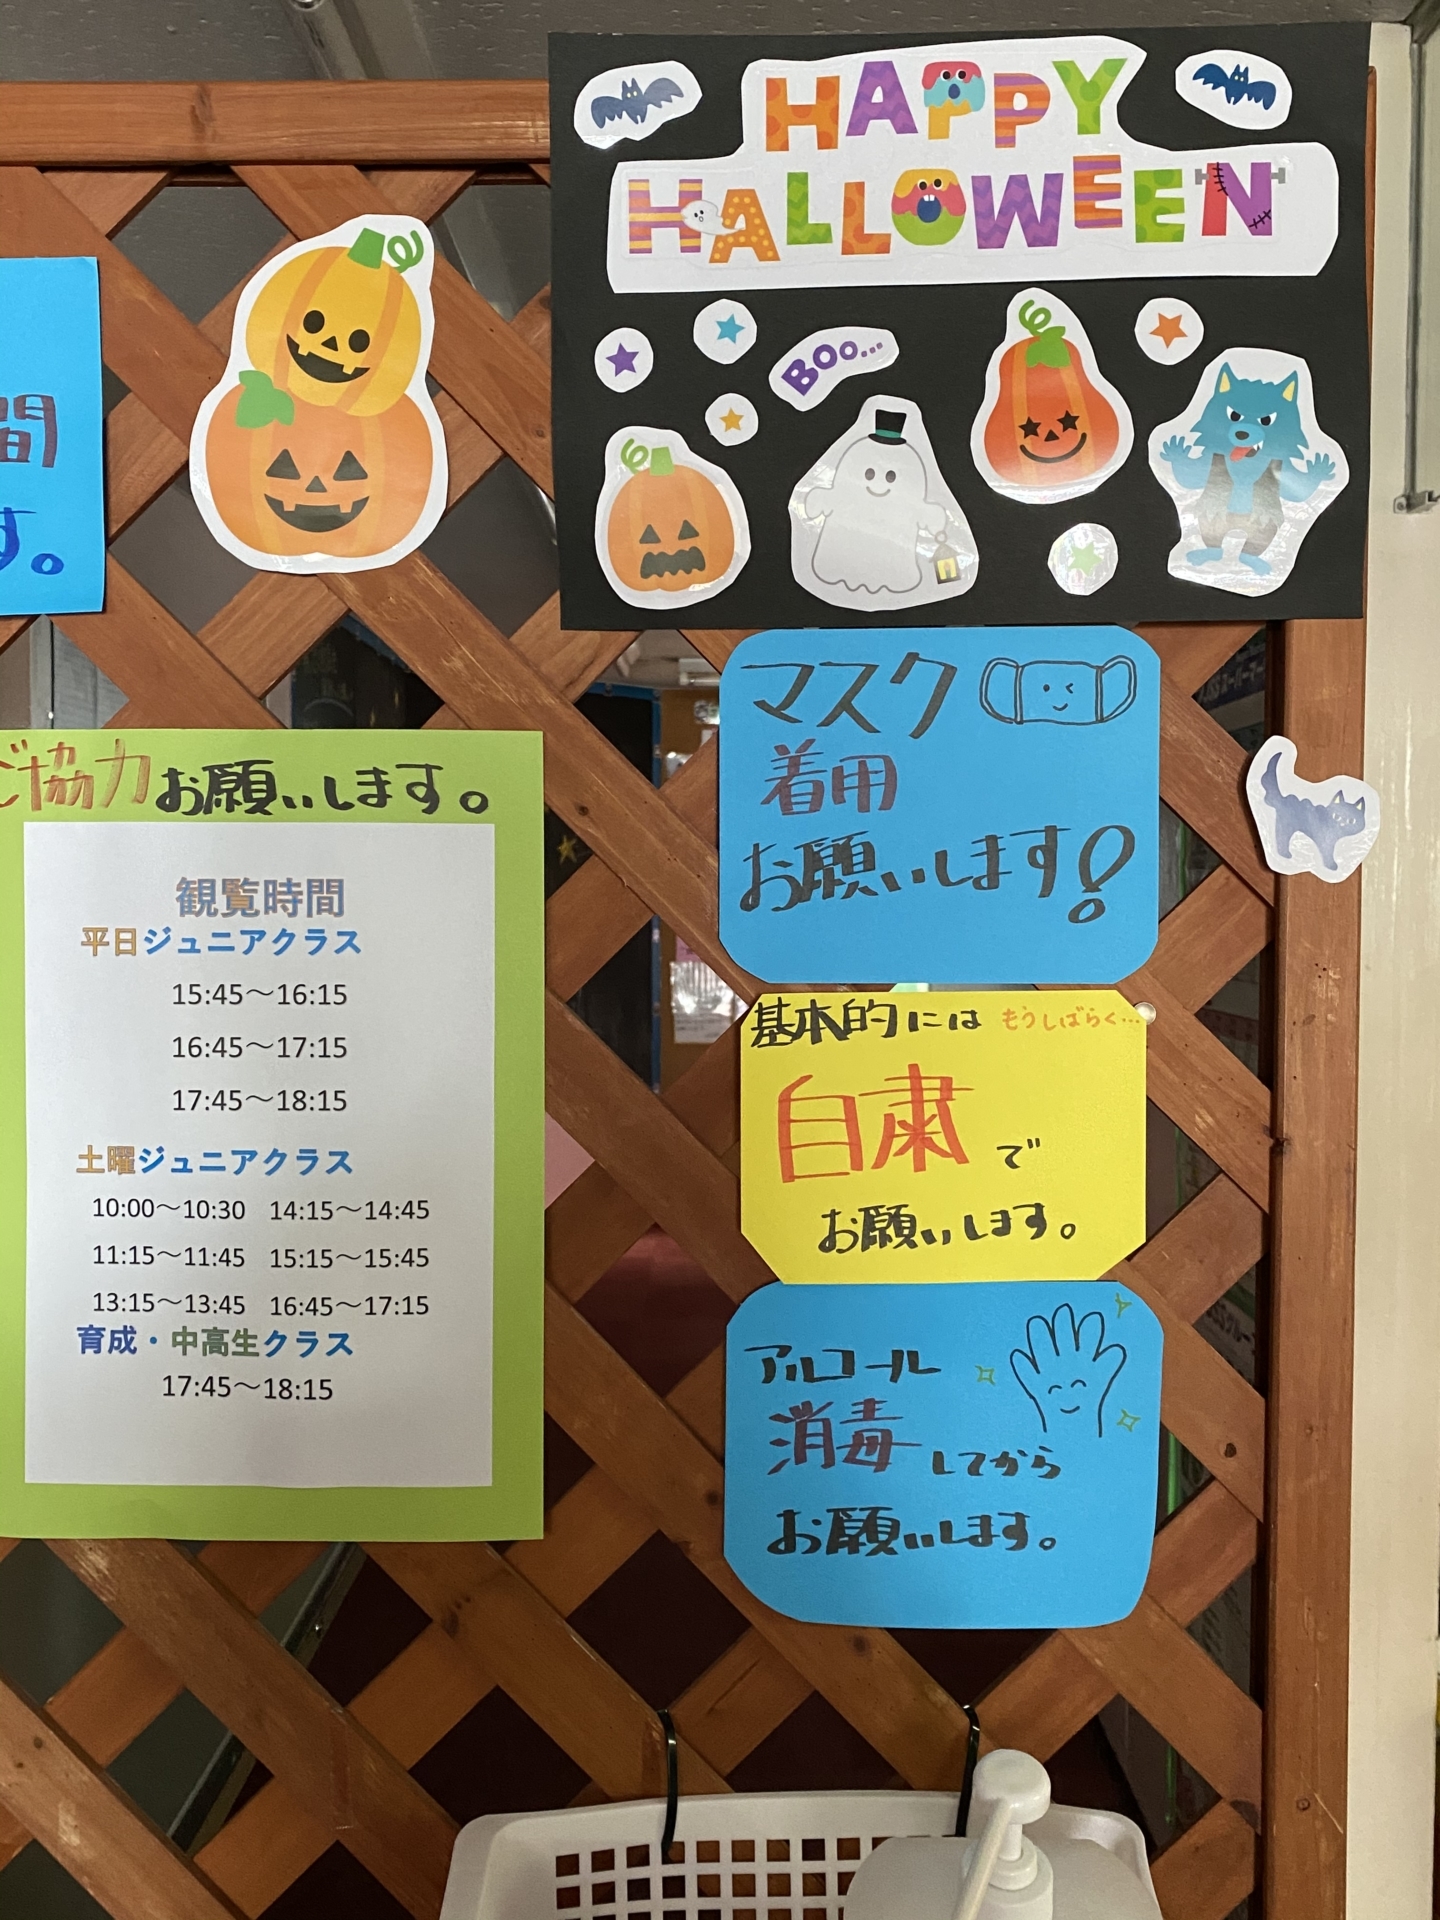 HAPPY
HALLOWEEN
Boo...
間
す。
ご協力お願いします。
観覧時間
平日ジュニアクラス
15:45～16:15
16:45～17:15
17:45～18:15
土曜ジュニアクラス
10:00～10:30 14:15～14:45
11:15～11:45 15:15～15:45
13:15～13:45 16:45～17:15
育成・中高生クラス
17:45～18:15
マスク
着用
お願いします!
基本的には もうしばらく...
自粛で
お願いします。
アルコール
消毒してから
お願いします。